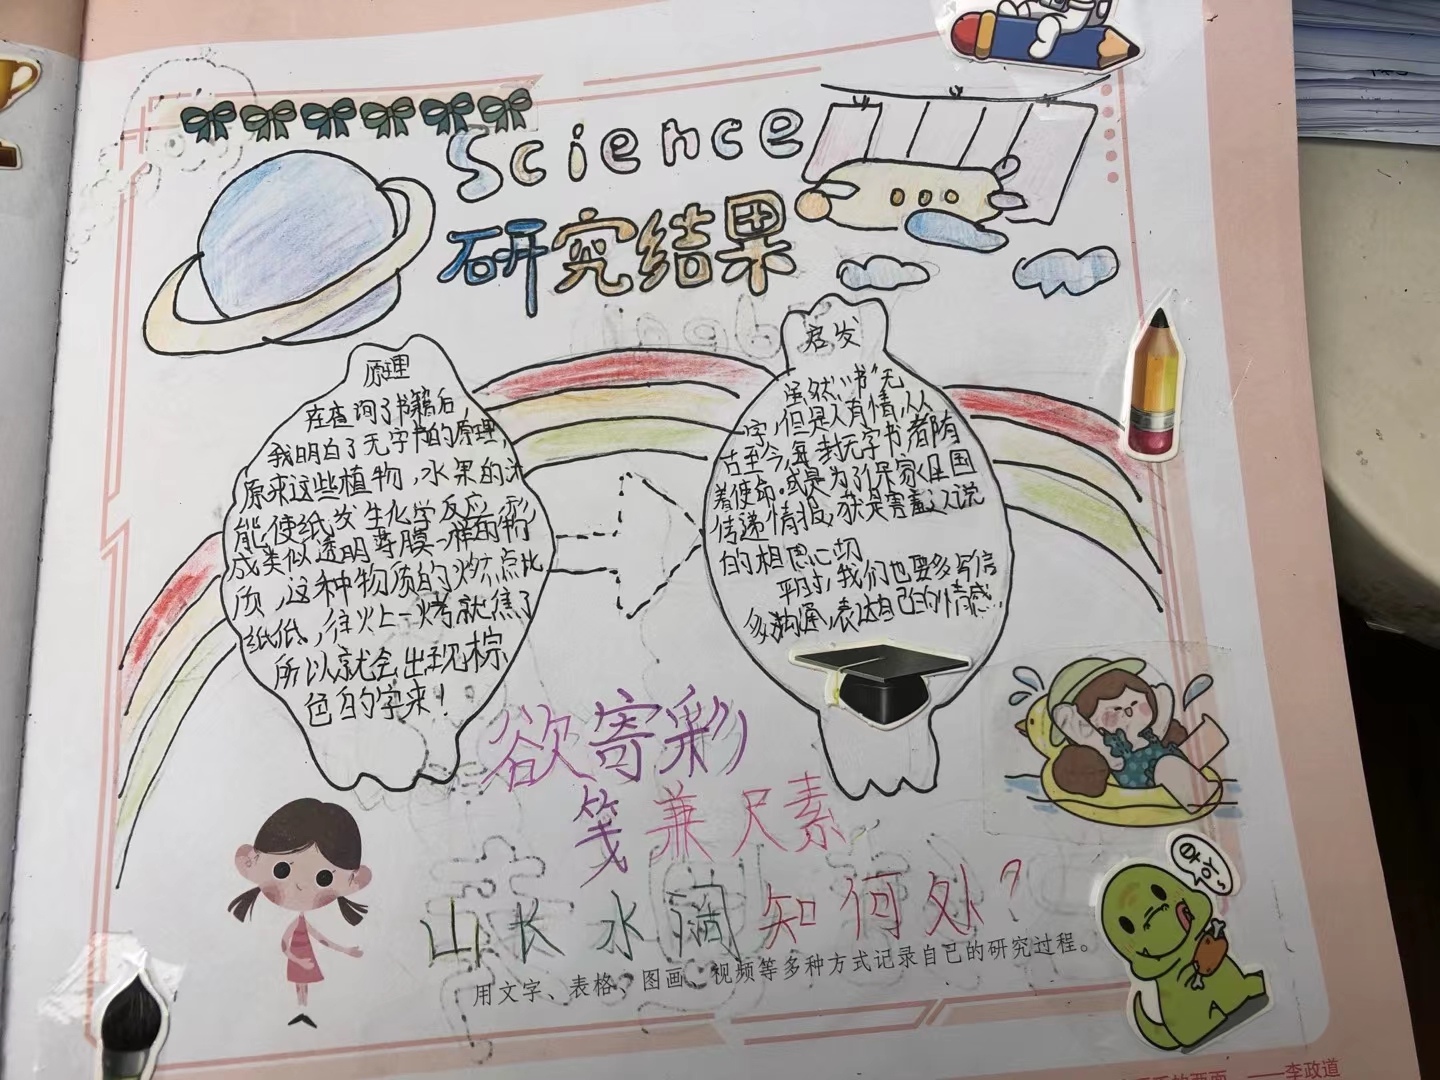 Science
研究结果
原理
在查询了书籍后，
我明白了无字书的原理，
原来这些植物，水果的汁
能使纸发生化学反应，形
成类似透明薄膜一样的物
质，这种物质的燃点比
纸低，往火上一烤就焦了
所以就会出现棕
色的字来！
启发
虽然“书”无
字，但是人有情，从
古至今，每封无字书都有
着使命。或是为了保家卫国
传递情报，获是害羞之人说
的相思心切
平时，我们也要多写信
多沟通，表达自己的情感。
欲寄彩
笺兼尺素
山长水阔知何处？
用文字、表格、图画、视频等多种方式记录自己的研究过程。
——李政道